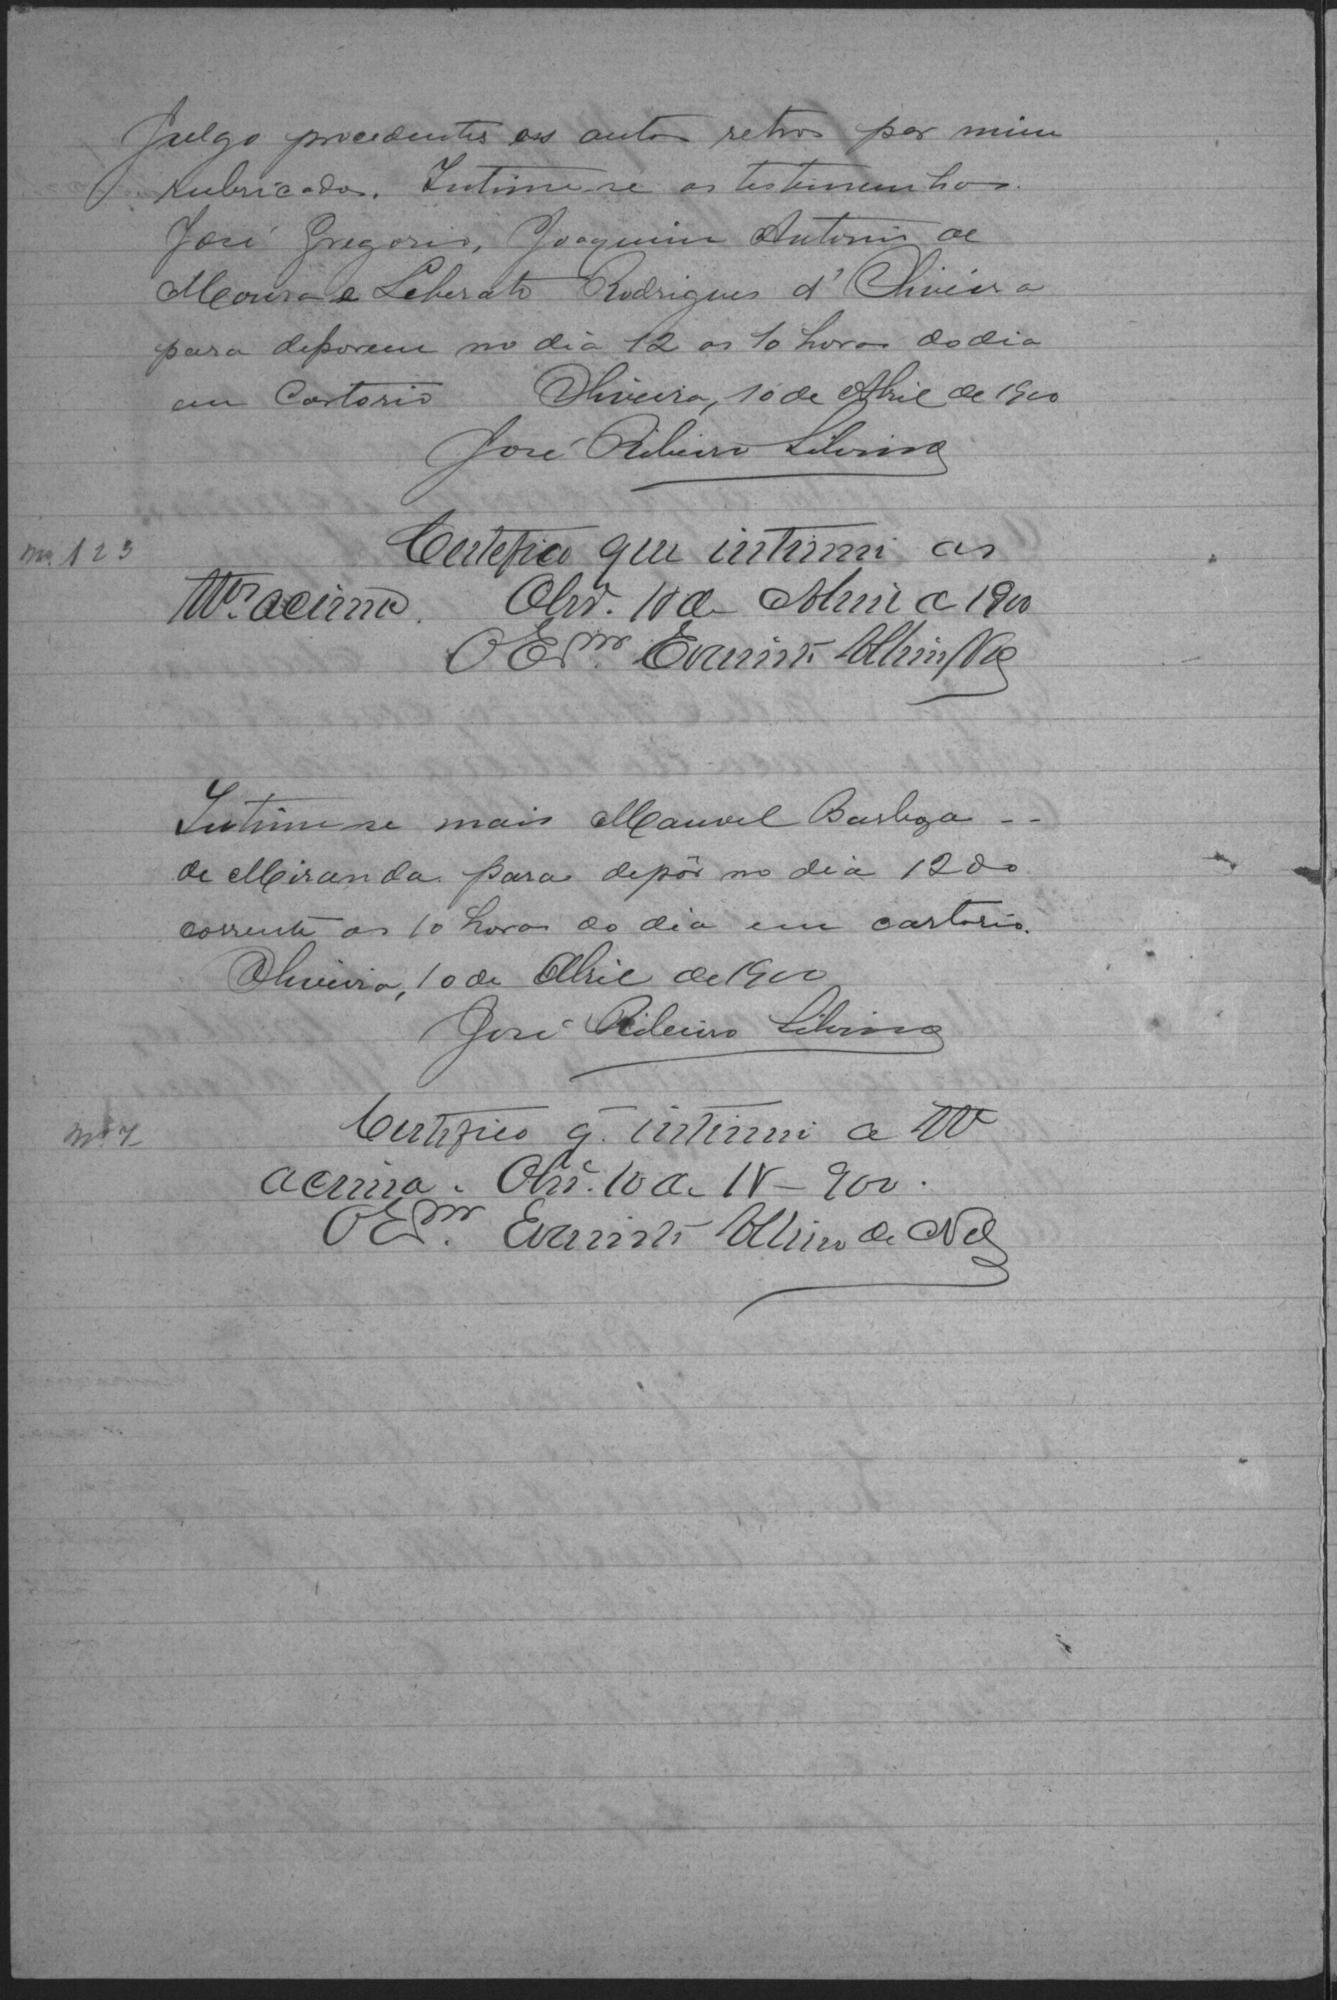 Julgo procedentes os autos retros por mim
rubricados. Intime-se as testemunhas.
José Gregorio, Joaquim Antonio de
Moura e Leberato Rodrigues d'Oliveira
para deporem no dia 12 as 10 horas do dia
em Cartorio Oliveira, 10 de Abril de 1900
José Ribeiro
Certefico que intimei as
acima. Olivª. 10 de Abril de 1900
O Esm. Evaristo
Intime-se mais Manoel Barboza --
de Miranda para depôr no dia 12 do
corrente as 10 horas do dia em cartorio.
Oliveira, 10 de Abril de 1900
José Ribeiro
Certifico q. intimei a
acima. Olivª. 10 de IV - 900.